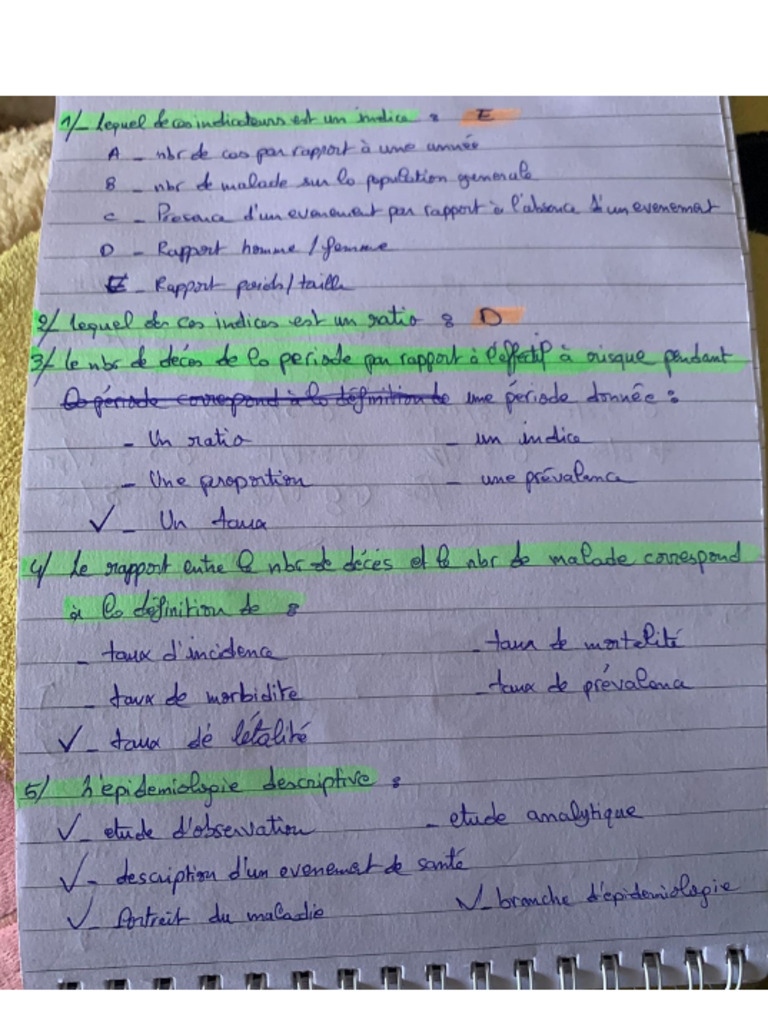 1/_ Lequel de ces indicateurs est un indice : E
A _ nbr de cas par rapport à une année
B _ nbr de malade sur la population generale
C _ Presence d'un evenement par rapport à l'absence d'un evenement
D _ Rapport homme / femme
E _ Rapport poids / taille
2/ lequel de ces indices est un ratio : D
3/ le nbr de décés de la periode par rapport à l'effectif à risque pendant
la période correspond à la définition de une période donnée :
_ Un ratio _ un indice
_ Une proportion _ une prévalence
✓ _ Un taux
4/ Le rapport entre le nbr de décés et le nbr de malade correspond
à la définition de :
_ taux d'incidence _ taux de mortalité
_ taux de morbidite _ taux de prévalence
✓ _ taux de létalité
5/ L'epidemiologie descriptive :
✓ _ etude d'observation _ etude analytique
✓ _ description d'un evenement de santé
✓ _ Portrait du maladie ✓ _ branche d'épidemiologie